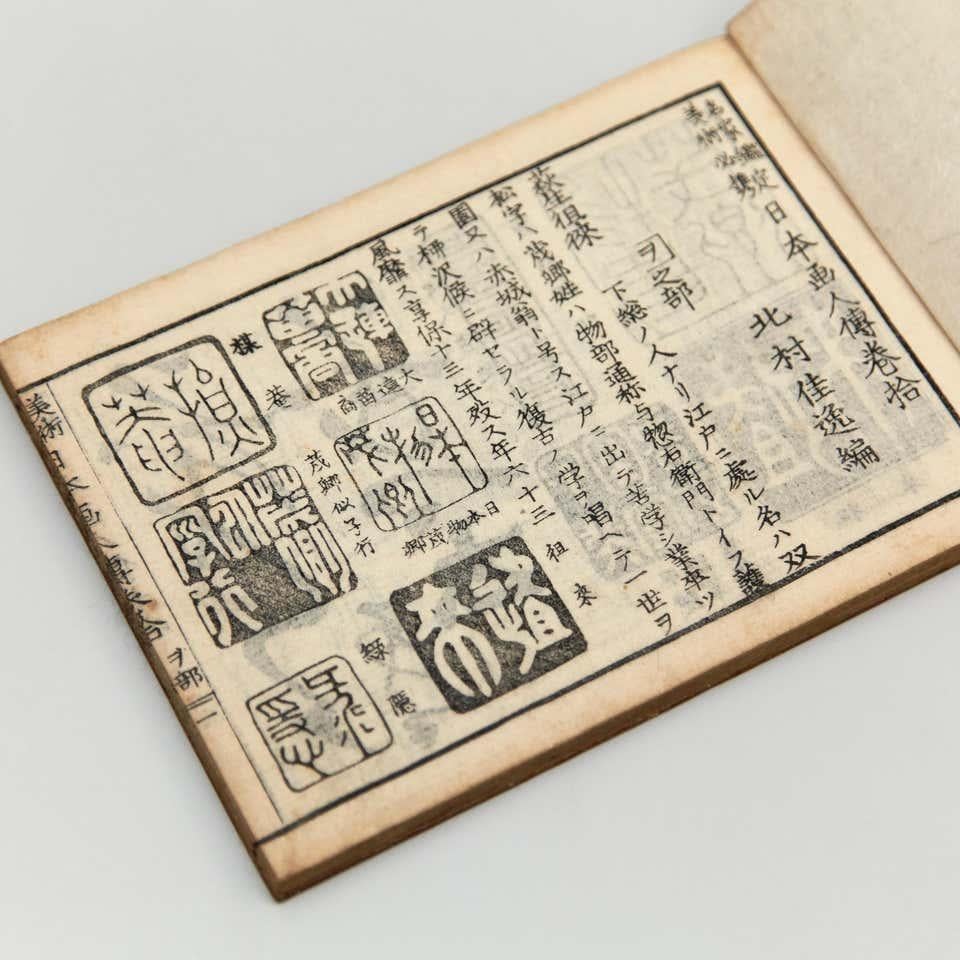 名家鑑定
美術必携
日本画人傳巻拾
北村佳逸編
ヲ之部
荻生徂徠 下総ノ人ナリ江戸ニ處ル名ハ双
松字ハ茂卿姓ハ物部通称与惣右衛門トイフ護
園又ハ赤城翁ト号ス江戸ニ出テ苦学シ業卒ツ
テ柳次候ニ群セラル復古ノ学ヲ唱ヘテ一世ヲ
風靡ス享保十三年殁ス年六十三
徂来
日本物茂卿
茂卿似子行
緑隱
楳菴
美術日本画人傳巻拾 ヲ部 一